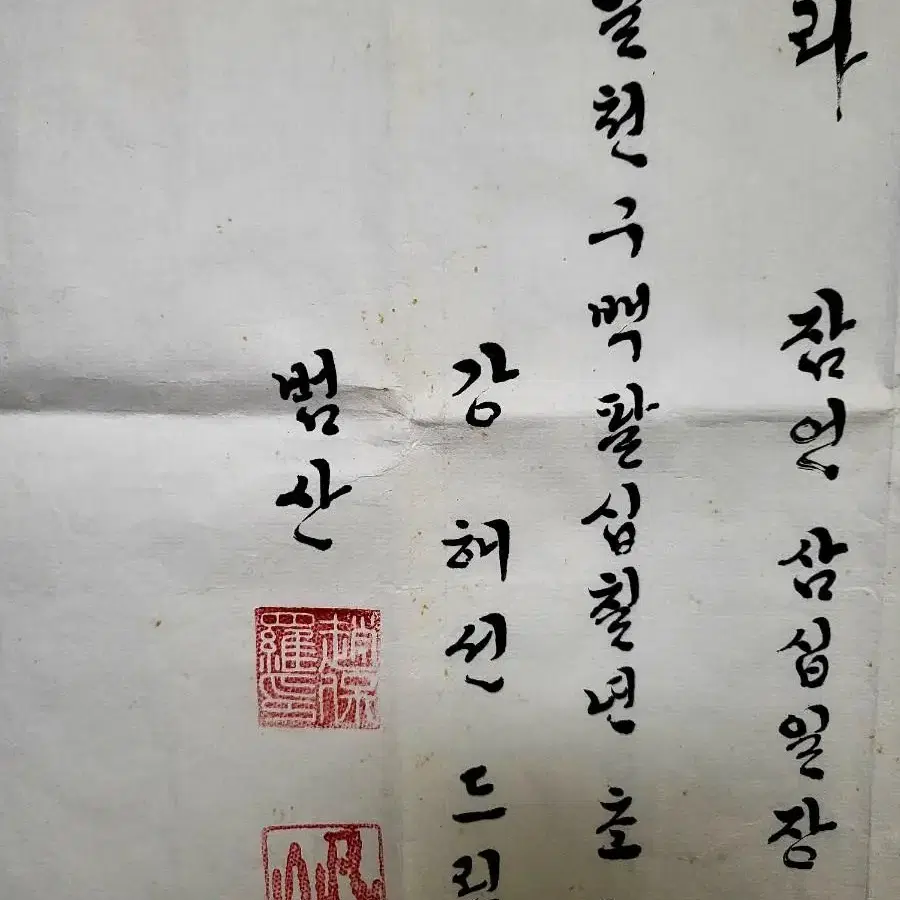 라
잠언 삼십일장
일천구백팔십칠년 초
강 혜선 드림
범산
趙保羅印